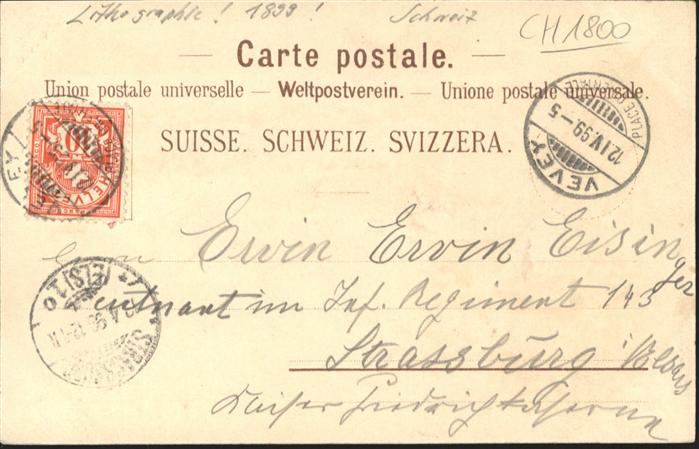 Lithographie! 1899! Schweiz CH1800
Carte postale.
Union postale universelle — Weltpostverein. — Unione postale universale.
SUISSE. SCHWEIZ. SVIZZERA.
VEVEY
12.IV.99.-5
10
HELVETIA
(ELS)
STRASSBURG
Ervin Ervin Eisinger
Leutnant im Inf. Regiment 143
Strassburg i/Elsass
Kaiser Friedrichkaserne